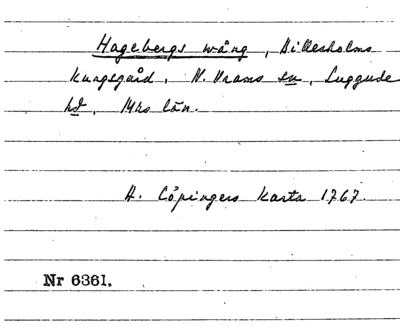 Hagebergs wång, Billesholms
kungsgård, N. Vrams sn, Luggude
hd, Mhs län.
A. Cöpingers karta 1767.
Nr 6361.